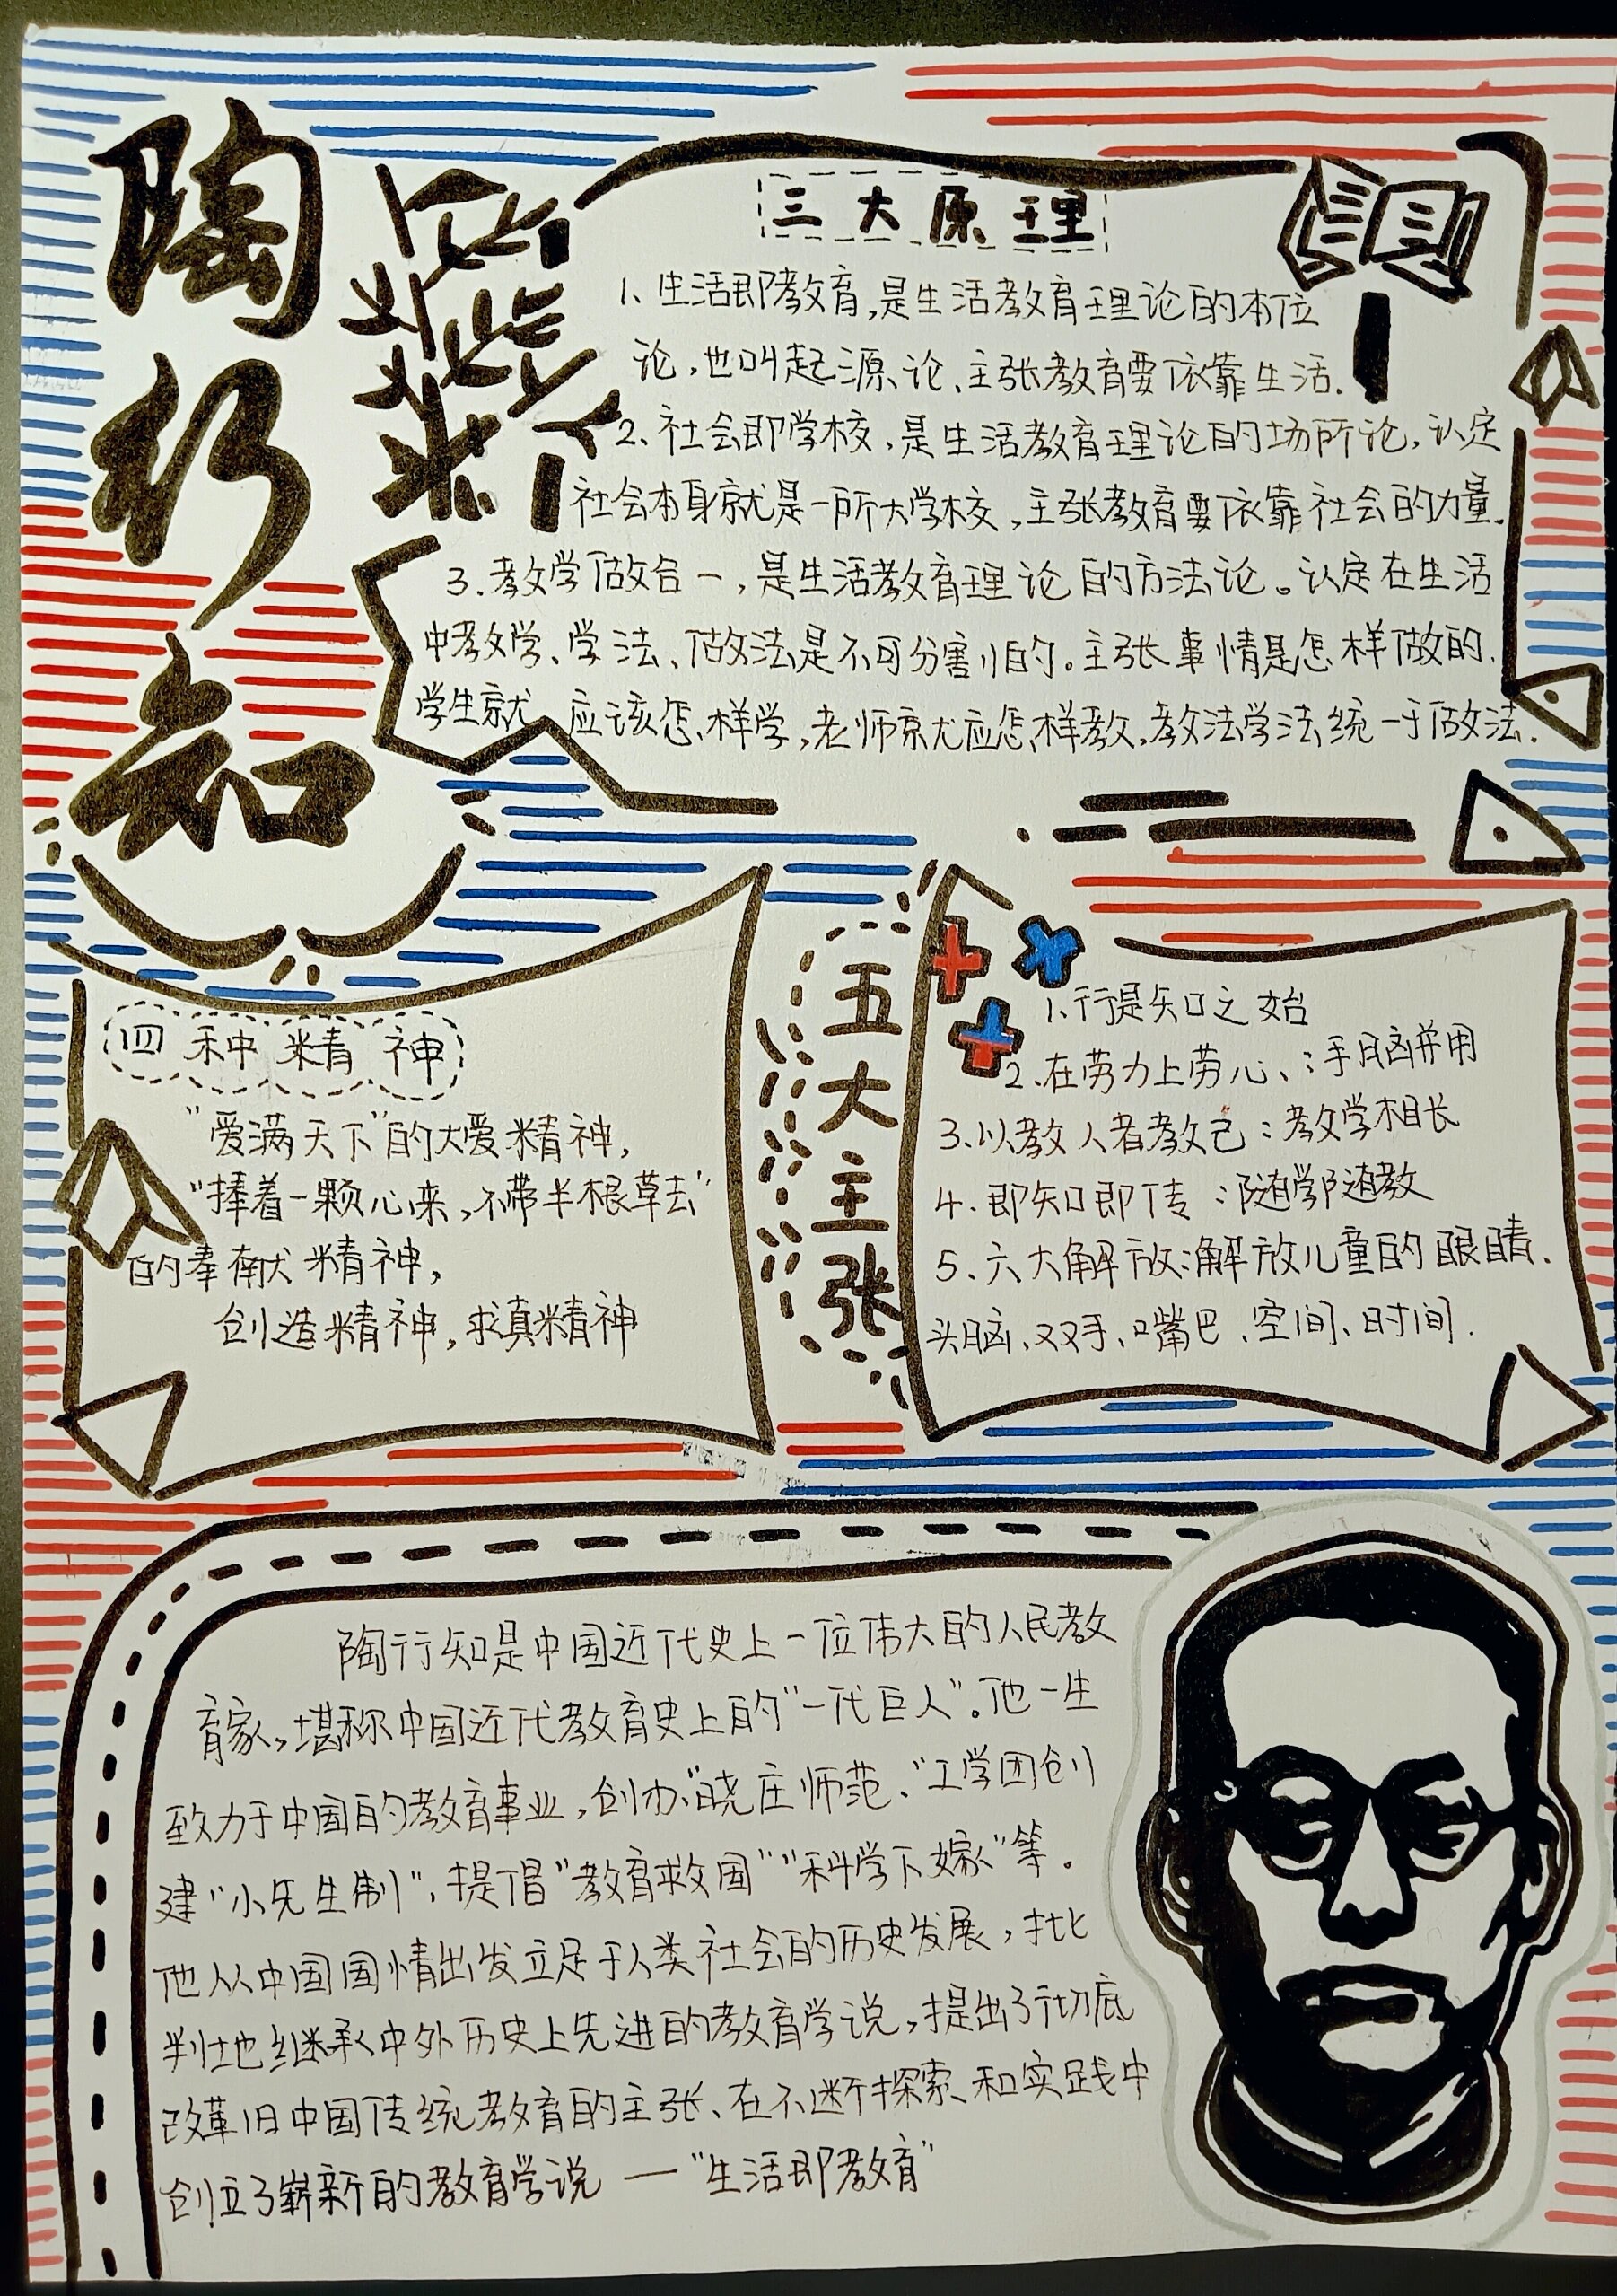 陶行知
三大原理
1、生活即教育,是生活教育理论的本位
论,也叫起源论、主张教育要依靠生活.
2、社会即学校,是生活教育理论的场所论,认定
社会本身就是一所大学校,主张教育要依靠社会的力量.
3.教学做合一,是生活教育理论的方法论。认定在生活
中教学、学法、做法是不可分割的。主张事情是怎样做的.
学生就应该怎样学,老师就应怎样教,教法学法统一于做法.
四种精神
"爱满天下"的大爱精神,
"捧着一颗心来,不带半根草去"
的奉献精神,
创造精神,求真精神
五大主张
1.行是知之始
2.在劳力上劳心、:手脑并用
3.以教人者教己:教学相长
4.即知即传:随学随教
5.六大解放:解放儿童的眼睛.
头脑、双手、嘴巴、空间、时间.
陶行知是中国近代史上一位伟大的人民教
育家,堪称中国近代教育史上的"一代巨人"。他一生
致力于中国的教育事业,创办"晓庄师范、"工学团创
建"小先生制",提倡"教育救国""科学下嫁"等。
他从中国国情出发立足于人类社会的历史发展,批
判地继承中外历史上先进的教育学说,提出了彻底
改革旧中国传统教育的主张、在不断探索、和实践中
创立了崭新的教育学说—"生活即教育"